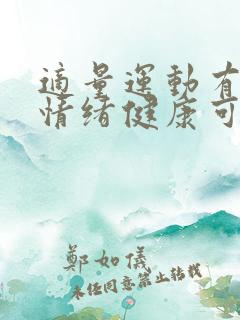 適量運動有
情绪健康可
鄭如儀
未经同意禁止转载